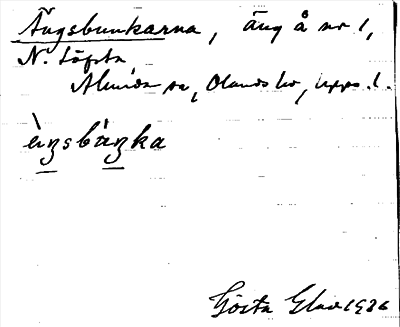 Ängsbunkarna, äng å nr 1,
N. Löfsta
Almunge sn, Olands hd, Upps. l.
ὲŋsbὰŋka
Gösta Elow 1936